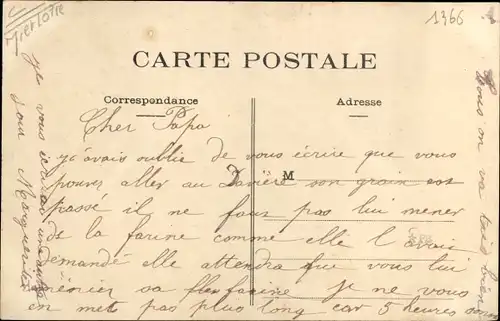 1366
CARTE POSTALE
Correspondance
Adresse
Cher Papa
j'avais oublié de vous écrire que vous
pouvez aller au M son grain est
passé il ne faus pas lui mener
de la farine comme elle l'avais
demandé elle attendra que vous lui
sa farine je ne vous
en met pas plus long car 5 heures sonne
je vous écrirai
pour Marguerite
tous on va tres bien